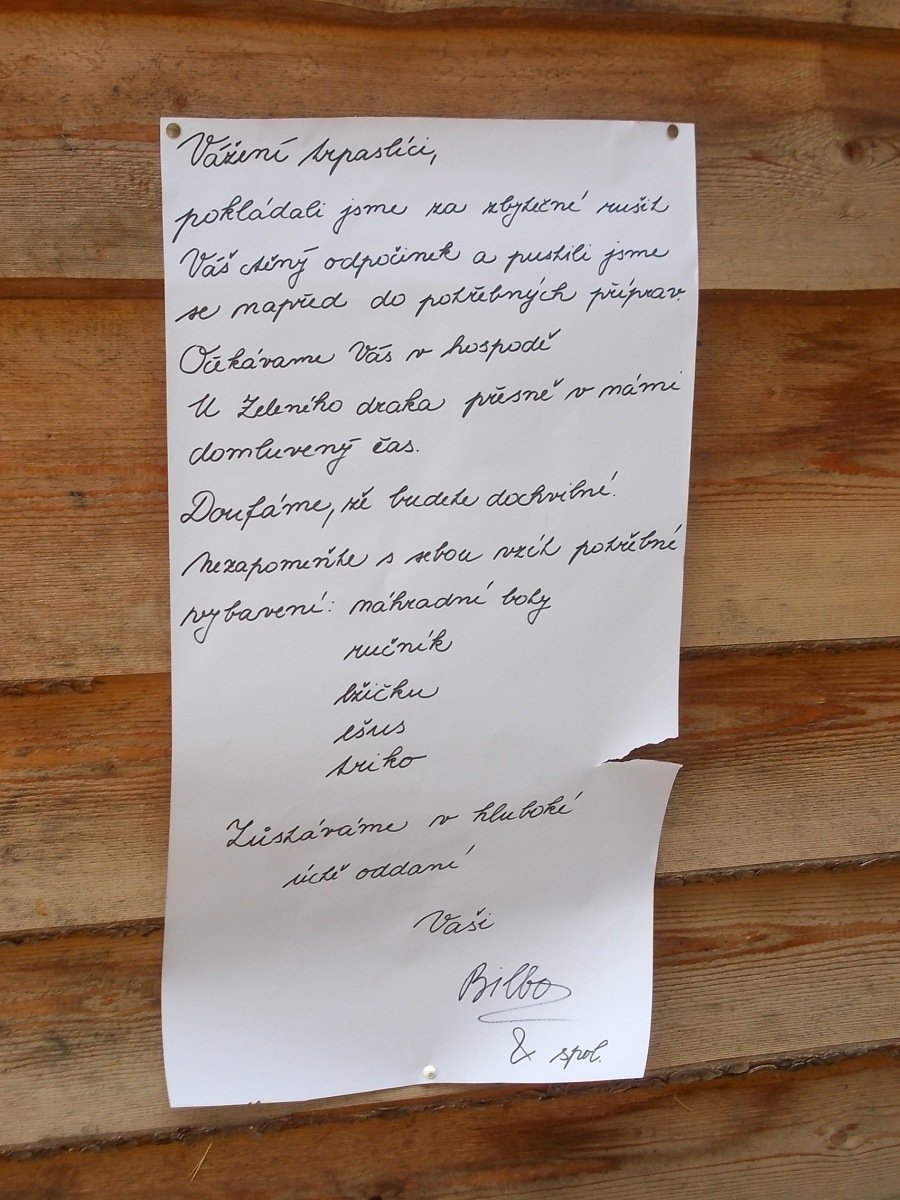 Vážení trpaslíci,
pokládali jsme za zbytečné rušit
Váš ctěný odpočinek a pustili jsme
se napřed do potřebných příprav.
Očekávame Vás v hospodě
U Zeleného draka přesně v námi
domluvený čas.
Doufáme, že budete dochvilné.
Nezapomeňte s sebou vzít potřebné
vybavení: náhradní boty
ručník
lžičku
ešus
triko
Zůstáváme v hluboké
úctě oddaní
Vaši
Bilbo
& spol.